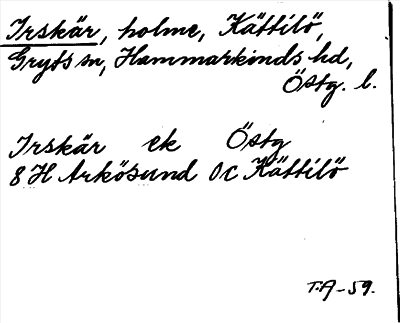 Irskär, holme, Kättilö,
Gryts sn, Hammarkinds hd,
Östg. l.
Irskär ek Östg
8H Arkösund 0C Kättilö
T.A-59.